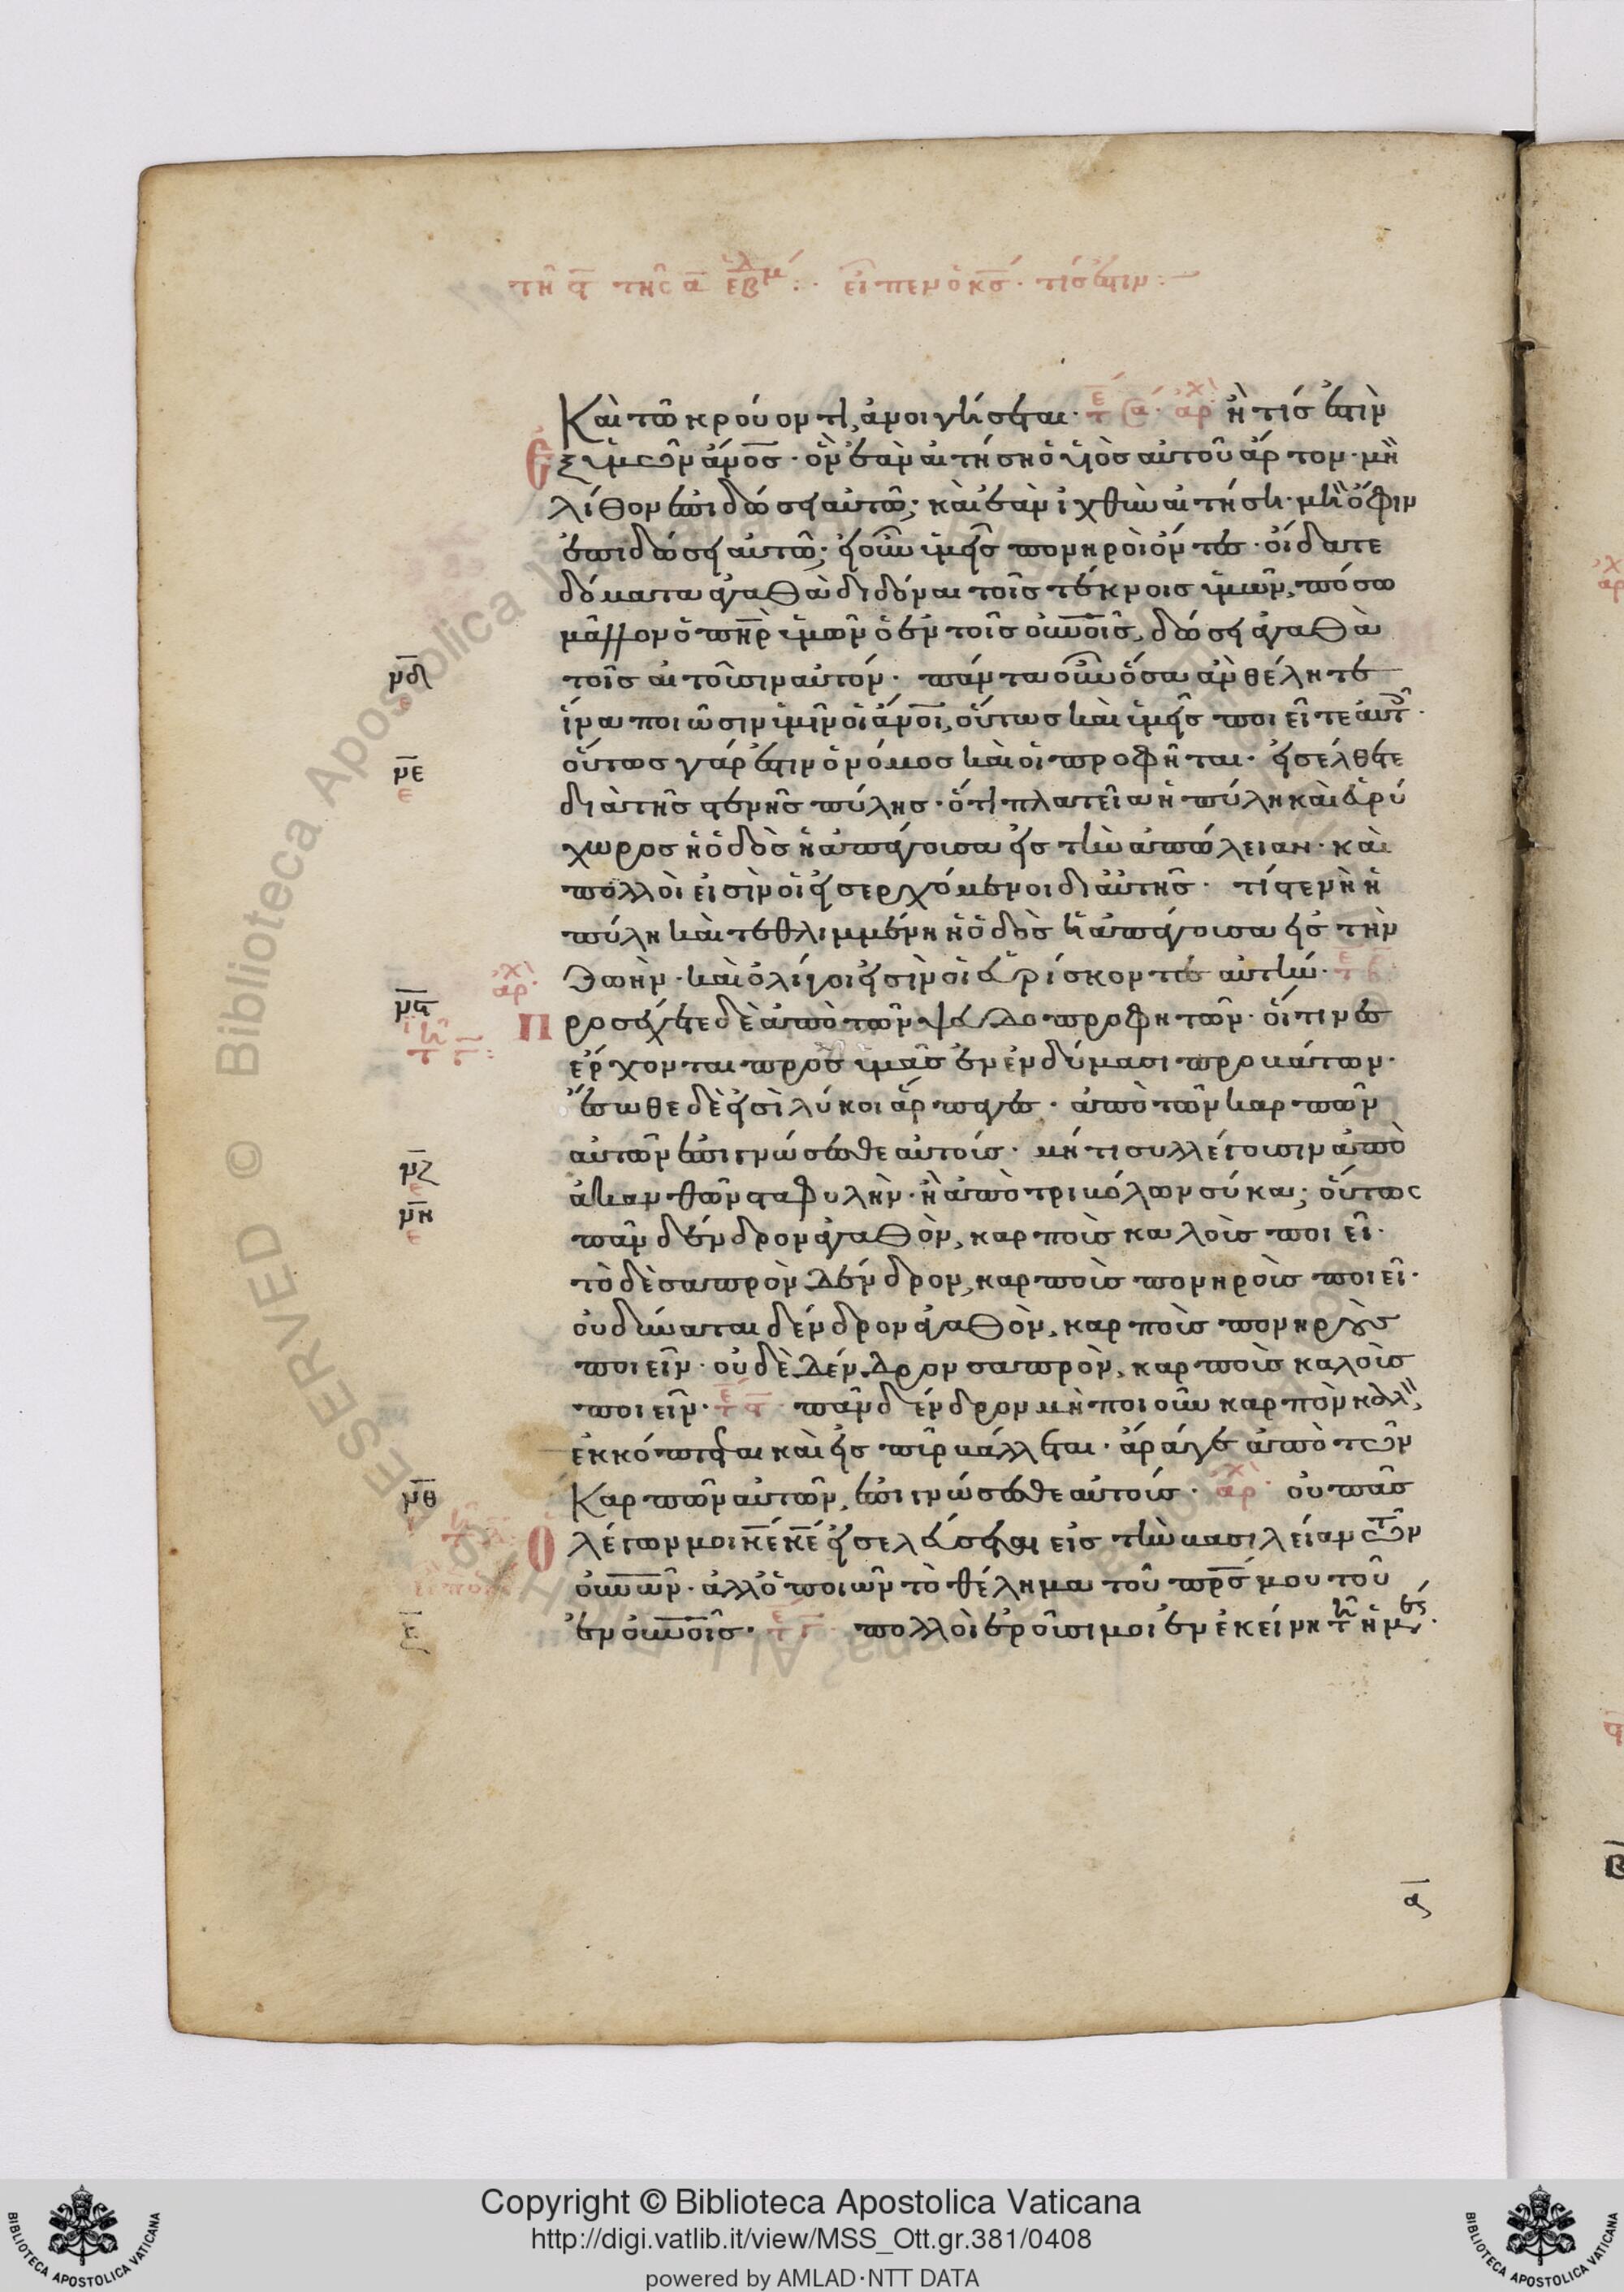 τῆ ϛ̅ τῆς α̅ ἑβδμ´ : · εἶπεν ὁ κ̅ς̅ · τίς ἐστιν :—
Καὶ τῶ κρούοντι, ἀνοιγήσεται · τε ϛα · ἀρχ ἢ τίς ἐστὶν
ἐξ ὑμῶν ἄν̅ο̅ς̅ · ὃν ἐὰν αἰτήση ὁ υἱὸς αὐτοῦ ἄρτον · μὴ
λίθον ἐπιδώσει αὐτῶ; καὶ ἐὰν ἰχθὺν αἰτήση · μὴ ὄφιν
ἐπιδώσει αὐτῶ; εἰ οὖν ὑμεῖς πονηροὶ ὄντες · οἴδατε
δόματα ἀγαθὰ διδόναι τοῖς τέκνοις ὑμῶν, πόσω
μᾶλλον ὁ π̅η̅ρ̅ ὑμῶν ὁ ἐν τοῖς οὐν̅ο̅ῖ̅ς̅, δώσει ἀγαθὰ
μ̅δ̅ τοῖς αἰτοῦσιν αὐτόν · πάντα οὖν ὅσα ἂν θέλητε
ἵνα ποιῶσιν ὑμῖν οἱ ἄν̅ο̅ι̅, οὕτως καὶ ὑμεῖς ποιεῖτε αὐτ ·
μ̅ε̅ οὕτως γάρ ἐστιν ὁ νόμος καὶ οἱ προφῆται · εἰσέλθετε
διὰ τῆς στενῆς πύλης · ὅτι πλατεῖα ἡ πύλη καὶ εὐρύ
χωρος ἡ ὁδὸς ἡ ἀπάγουσα εἰς τὴν ἀπώλειαν · καὶ
πολλοὶ εἰσὶν οἱ εἰσερχόμενοι δι αὐτῆς · τί στενὴ ἡ
πύλη καὶ τεθλιμμένη ἡ ὁδὸς ἡ ἀπάγουσα εἰς τὴν
ἀρχ ζωὴν · καὶ ὀλίγοι εἰσὶν οἱ εὑρίσκοντες αὐτήν ·
μ̅ϛ̅ Προσέχετε δὲ ἀπὸ τῶν ψευδοπροφητῶν · οἵτινες
ἔρχονται πρὸς ὑμᾶς ἐν ἐνδύμασι προβάτων ·
ἔσωθε δὲ εἰσὶ λύκοι ἅρπαγες · ἀπὸ τῶν καρπῶν
αὐτῶν ἐπιγνώσεσθε αὐτούς · μήτι συλλέγουσιν ἀπὸ
μ̅ζ̅ ἀκανθῶν σταφυλὴν · ἢ ἀπὸ τριβόλων σύκα; οὕτως
μ̅η̅ πᾶν δένδρον ἀγαθὸν, καρποὺς καλοὺς ποιεῖ ·
τὸ δὲ σαπρὸν δένδρον, καρποὺς πονηροὺς ποιεῖ ·
οὐ δύναται δένδρον ἀγαθὸν, καρποὺς πονηροὺς
ποιεῖν · οὐδὲ δένδρον σαπρὸν, καρποὺς καλοὺς
ποιεῖν · πᾶν δένδρον μὴ ποιοῦν καρπὸν καλ,
ἐκκόπτεται καὶ εἰς πῦρ βάλλεται · ἄρα γε ἀπὸ τῶν
μ̅θ̅ καρπῶν αὐτῶν, ἐπιγνώσεσθε αὐτούς · ἀρχ · οὐ πᾶς
Ὁ λέγων μοι κ̅ε̅ κ̅ε̅ εἰσελεύσεται εἰς τὴν βασιλείαν τῶν
οὐν̅ῶ̅ν̅ · ἀλλ ὁ ποιῶν τὸ θέλημα τοῦ π̅ρ̅ς̅ μου τοῦ
ξ̅ ἐν οὐν̅ο̅ῖ̅ς̅ · πολλοὶ ἐροῦσι μοι ἐν ἐκείνη τῆ ἡμε ·
α̅
Copyright © Biblioteca Apostolica Vaticana
http://digi.vatlib.it/view/MSS_Ott.gr.381/0408
powered by AMLAD·NTT DATA